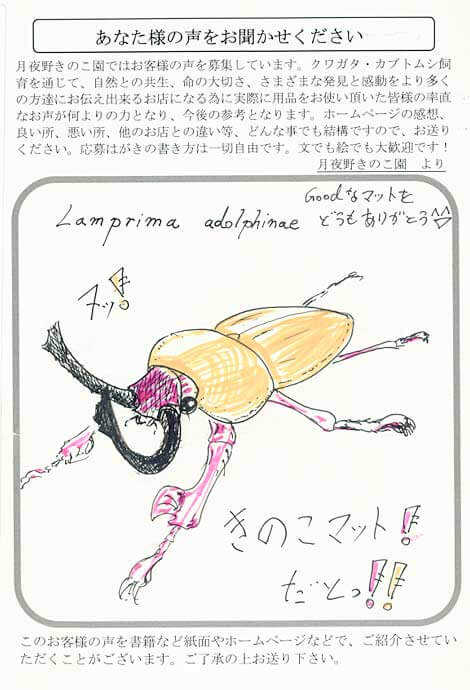 あなた様の声をお聞かせください
月夜野きのこ園ではお客様の声を募集しています。クワガタ・カブトムシ飼
育を通じて、自然との共生、命の大切さ、さまざまな発見と感動をより多く
の方達にお伝え出来るお店になる為に実際に用品をお使い頂いた皆様の率直
なお声が何よりの力となり、今後の参考となります。ホームページの感想、
良い所、悪い所、他のお店との違い等、どんな事でも結構ですので、お送り
ください。応募はがきの書き方は一切自由です。文でも絵でも大歓迎です！
月夜野きのこ園　より
Goodなマットを
どうもありがとう^^
Lamprima adolphinae
ヌッ!
きのこマット!
だとっ!!
このお客様の声を書籍など紙面やホームページなどで、ご紹介させてい
ただくことがございます。ご了承の上お送り下さい。